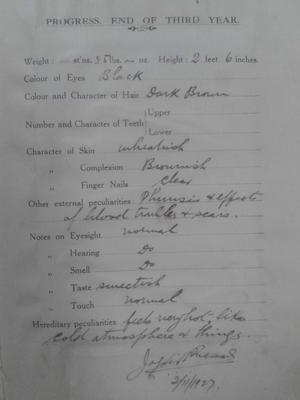 PROGRESS. END OF THIRD YEAR.
Weight: st'ns. lbs. oz. Height: 2 feet 6 inches.
Colour of Eyes Black
Colour and Character of Hair Dark Brown
Upper
Number and Character of Teeth
Lower
Character of Skin wheatish
" Complexion Brownish
" Finger Nails Clear
Other external peculiarities & effects
of blood trouble & scars.
Notes on Eyesight normal
" Hearing Do
" Smell Do
" Taste sweetish
" Touch normal
Hereditary peculiarities feels very hot, like
cold atmosphere & things.
1927.